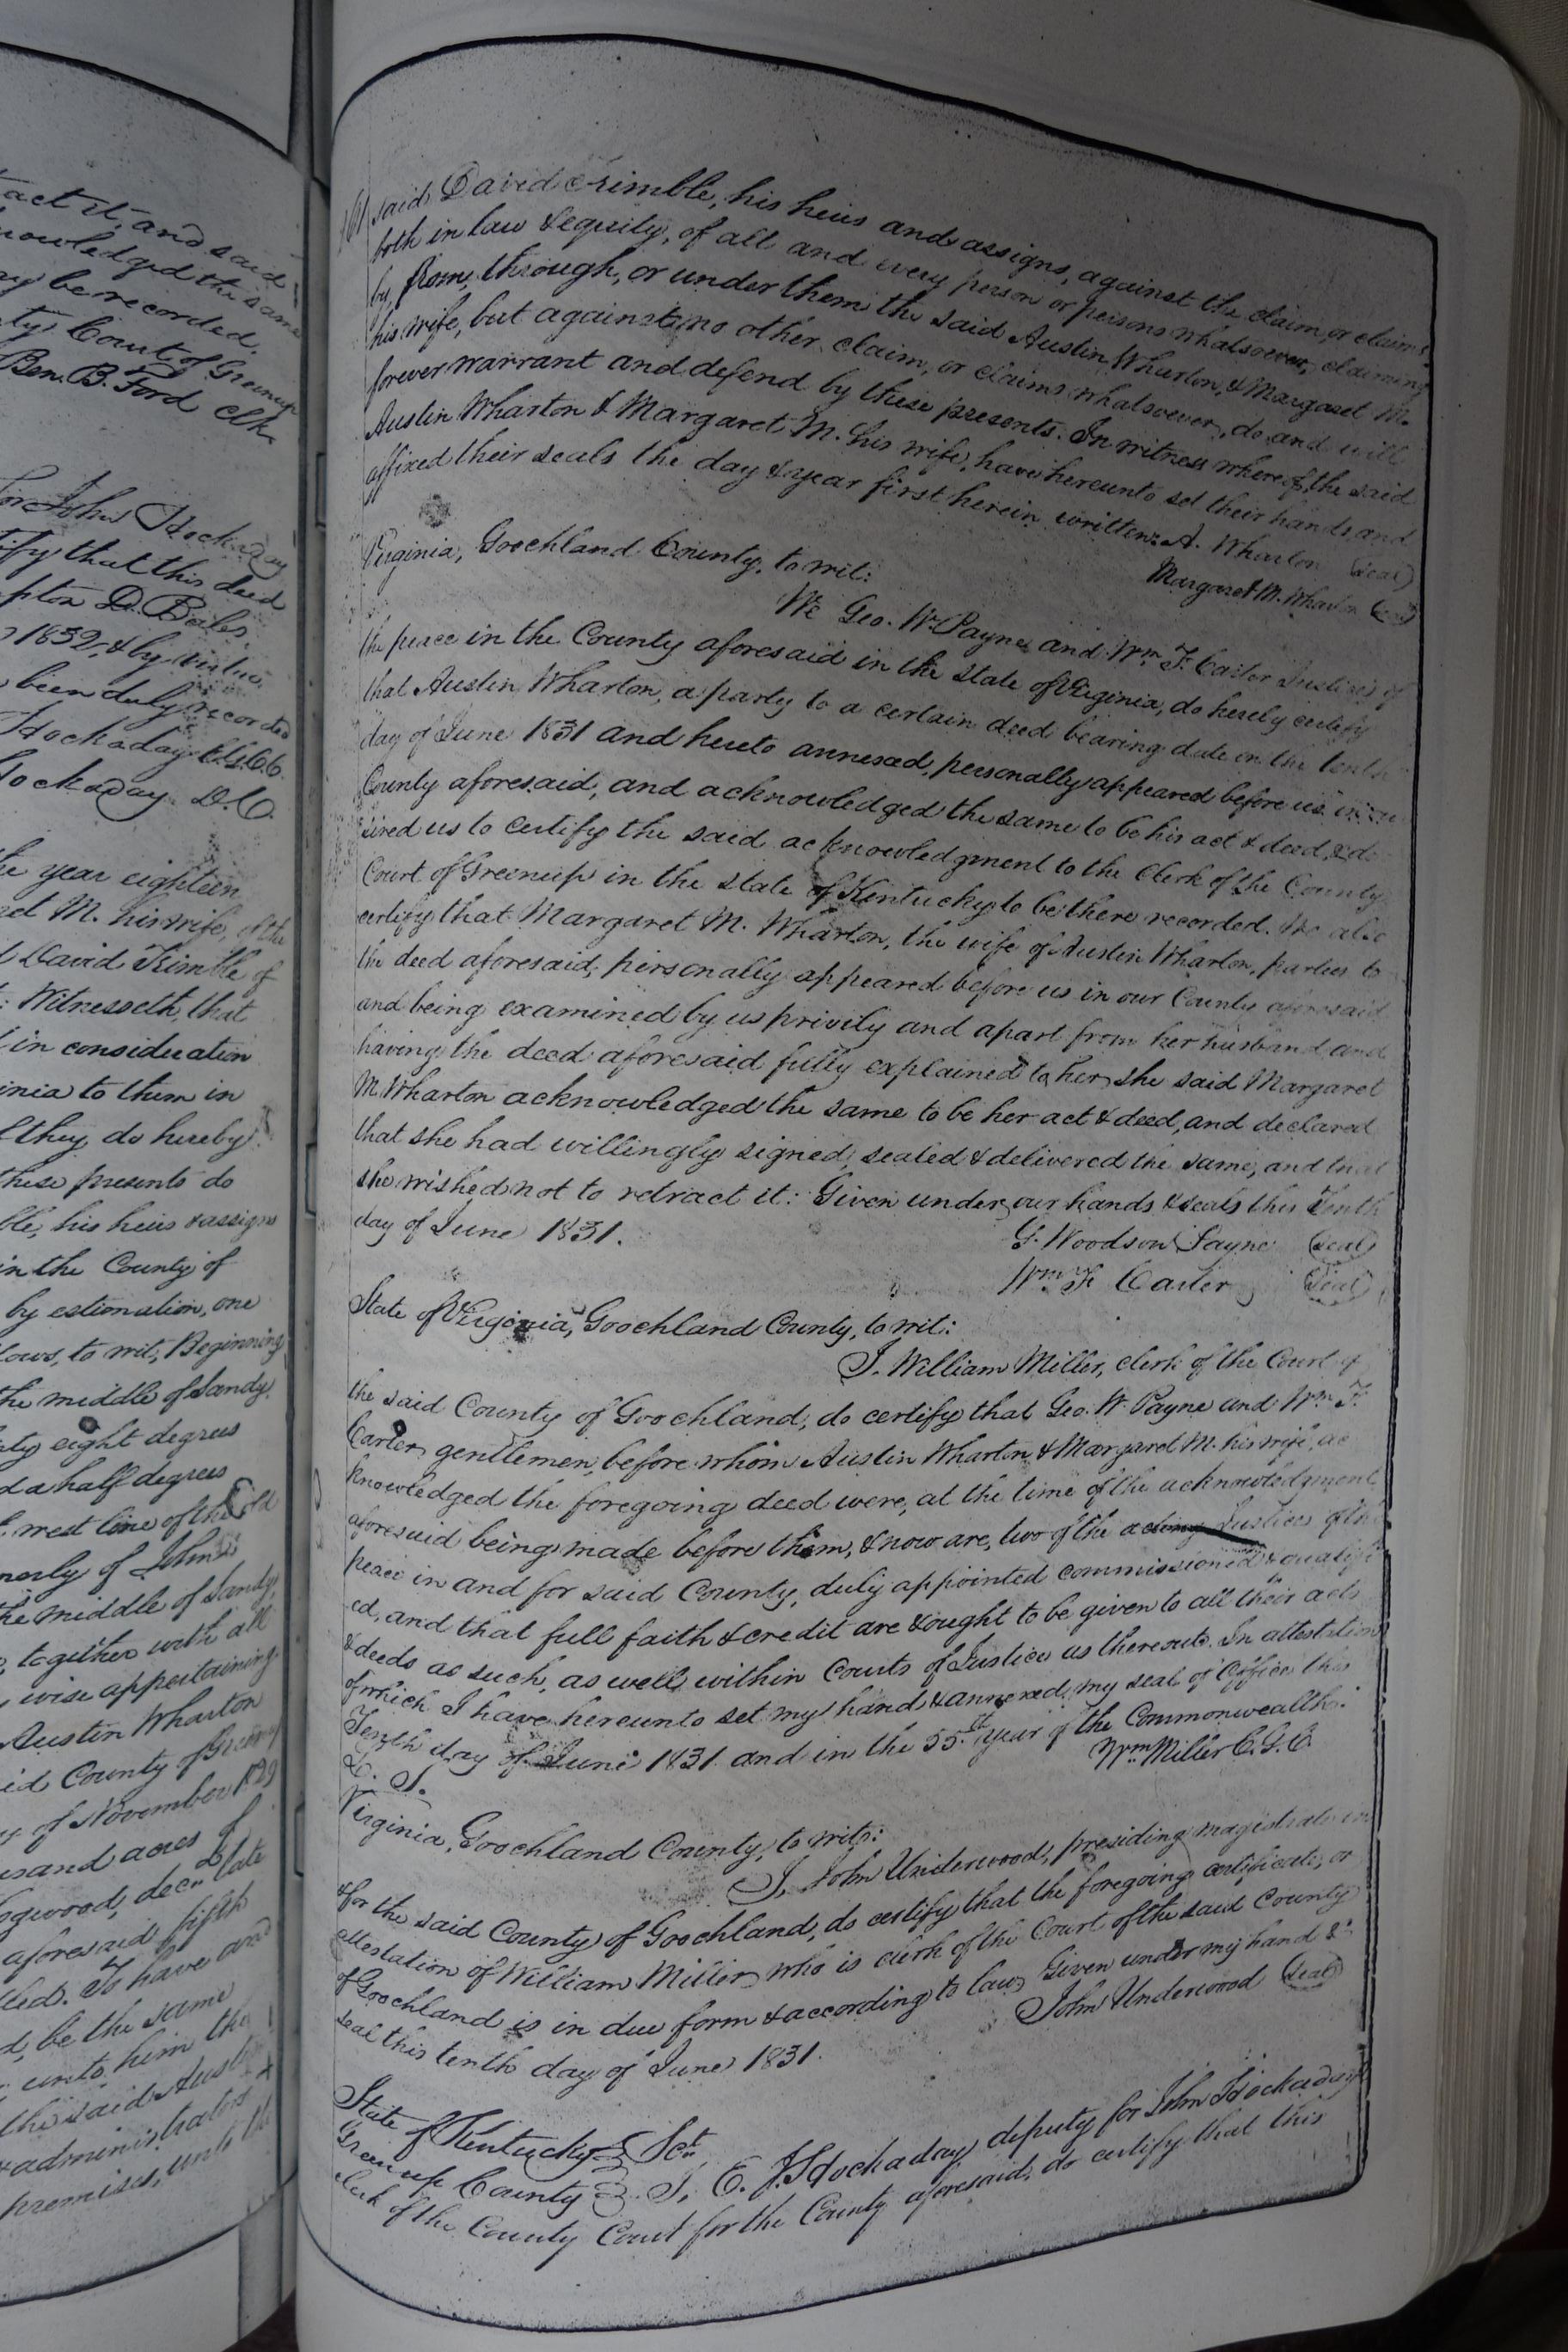 act it, and said
nowledged the same
ay be recorded.
ty Court of Greenup
Ben. B. Ford Clk.
for John Hockaday
tify that this deed
pton D. Beiles
1832, & by virtue
been duly recorded
Hockaday Clk G.C.C.
Hockaday D.C.
he year eighteen
et M. his wife, of the
d David Trimble of
: Witnesseth, that
d in consideration
inia to them in
d they do hereby
these presents do
ble, his heirs & assigns
in the County of
by estimation, one
lows, to wit; Beginning
the middle of Sandy
ty eight degrees
d a half degrees
west line of the old
merly of John
the middle of Sandy,
together with all
wise appertaining
Austin Wharton
id County of Greenup
y of November 1829
usand acres of
ogwood, decd. late
aforesaid fifth
led. To have and
d, be the same
unto him the
the said Austin
administrators
premises, unto the
161 said David Trimble, his heirs and assigns, against the claim, or claims
both in law & equity, of all and every person or persons whatsoever, claiming
by, from, through, or under them the said Austin Wharton, & Margaret M.
his wife, but against no other claim, or claims whatsoever, do and will
forever warrant and defend by these presents. In witness whereof, the said
Austin Wharton & Margaret M. his wife, have hereunto set their hands, and
affixed their seals the day & year first herein written. A. Wharton (Seal)
Margaret M. Wharton (Seal)
Virginia, Goochland County, to wit:
We Geo. W. Payne and Wm. F. Carter Justices of
the peace in the County aforesaid in the State of Virginia, do hereby certify
that Austin Wharton, a party to a certain deed bearing date on the tenth
day of June 1831 and hereto annexed, personally appeared before us in our
County aforesaid, and acknowledged the same to be his act & deed, & de
sired us to certify the said acknowledgment to the Clerk of the County
Court of Greenup in the State of Kentucky to be there recorded. We also
certify that Margaret M. Wharton, the wife of Austin Wharton, parties to
the deed aforesaid, personally appeared before us in our County aforesaid
and being examined by us privily and apart from her husband, and
having the deed aforesaid fully explained to her, she said Margaret
M. Wharton acknowledged the same to be her act & deed, and declared
that she had willingly signed, sealed & delivered the same, and that
she wished not to retract it: Given under our hands & seals this Tenth
day of June 1831. G. Woodson Payne (Seal)
Wm. F. Carter (Seal)
State of Virginia, Goochland County, to wit:
I. William Miller, clerk of the Court of
the said County of Goochland, do certify that Geo. W. Payne and Wm. F.
Carter, gentlemen, before whom Austin Wharton & Margaret M. his wife, ac
knowledged the foregoing deed were, at the time of the acknowledgment
aforesaid being made before them, & now are, two of the acting Justices of the
peace in and for said County, duly appointed commissioned & qualifi
ed, and that full faith & credit are & ought to be given to all their acts
& deeds as such, as well within Courts of Justice as thereout. In attestation
of which I have hereunto set my hand & annexed my seal of office this
Tenth day of June 1831 and in the 55th. year of the Commonwealth.
L. S. Wm. Miller C.G.C.
Virginia, Goochland County, to wit:
I, John Underwood, presiding magistrate in
& for the said County of Goochland, do certify that the foregoing certificate, or
attestation of William Miller, who is clerk of the Court of the said County
of Goochland is in due form & according to law. Given under my hand &
seal this tenth day of June 1831. John Underwood (Seal)
State of Kentucky Sct.
Greenup County I, E. J. Hockaday deputy for John Hockaday
Clerk of the County Court for the County aforesaid, do certify that this